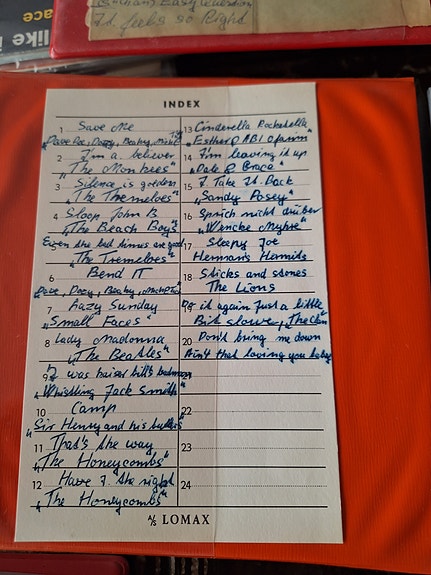 It feels so Right
like i
ace
INDEX
1 Save Me
"Dave Dee, Dozy, Beaky, Mick & Tich
2 I'm a believer
"The Monkees"
3 Silence is golden
"The Tremeloes"
4 Sloop John B
"The Beach Boys"
5 Even the bad times are good
"The Tremeloes"
6 Bend IT
Dave, Dozy, Beaky, Mich & Tich
7 Lazy Sunday
"Small Faces"
8 Lady Madonna
"The Beatles"
9 I was Kaiser bill's batman
"Whistling Jack Smith"
10 Camp
"Sir Henry and his butlers"
11 That's the way
"The Honeycombs"
12 Have I the right
"The Honeycombs"
13 Cinderella Rockefella
"Esther & ABI Ofarim"
14 I'm leaving it up
"Dale & Grace"
15 I Take It Back
"Sandy Posey"
16 Sprich nicht drüber
"Wencke Myhre"
17 Sleepy Joe
Herman's Hermits
18 Sticks and stones
The Lions
19 Do it again just a little
Bit slower, "The Clan
20 Don't bring me down
Ain't that loving you baby
21
22
23
24
A/S LOMAX